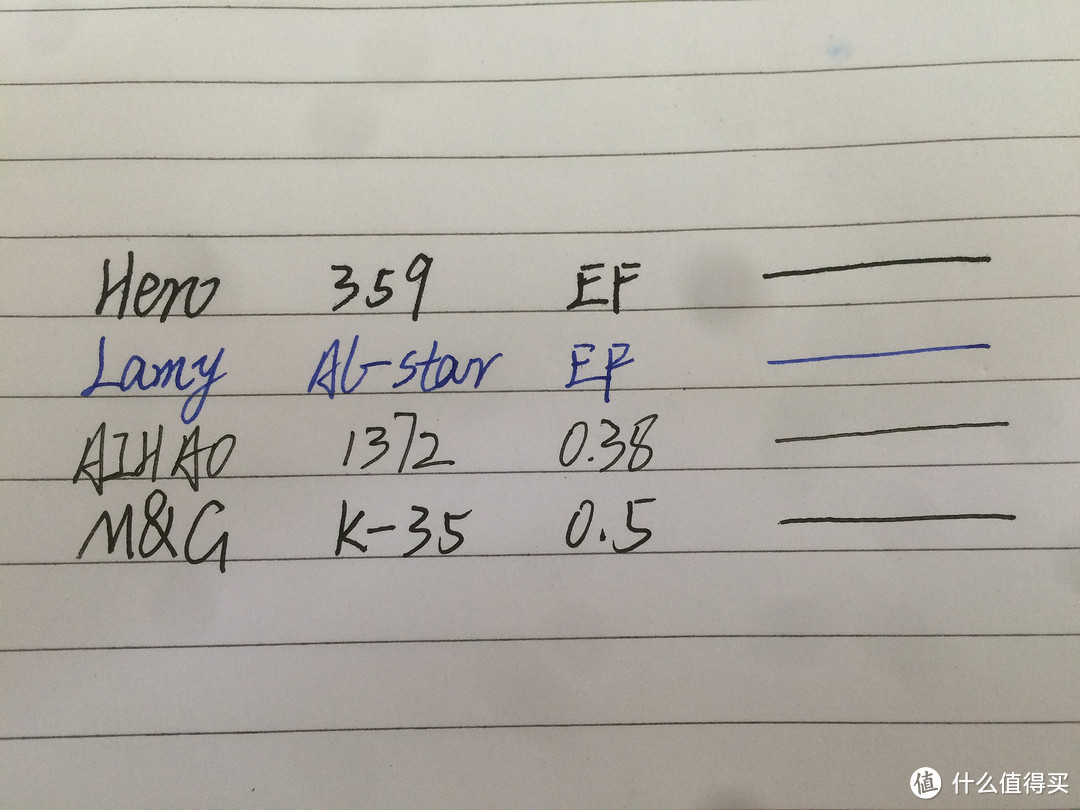 Hero 359 EF
Lamy Al-star EF
AIHAO 1372 0.38
M&G K-35 0.5
值 什么值得买